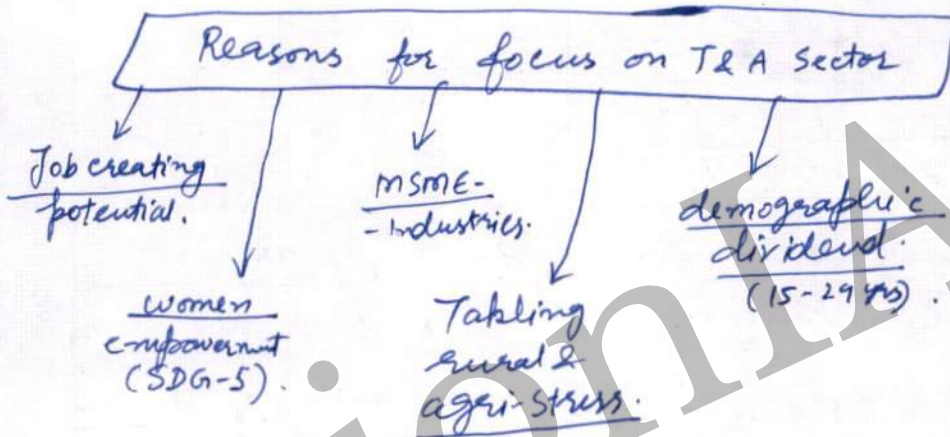 Reasons for focus on T&A Sector
Job creating
potential.
women
empowerment
(SDG-5).
MSME-
-industries.
Takling
rural &
agri-stress.
demographic
dividend.
(15-29 yrs).